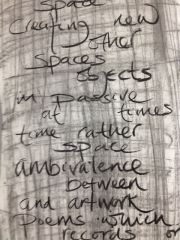 Space
Creating new
other
Spaces
objects
in passive
at times
time rather
space
ambivalence
between
and artwork
Poems which
records or